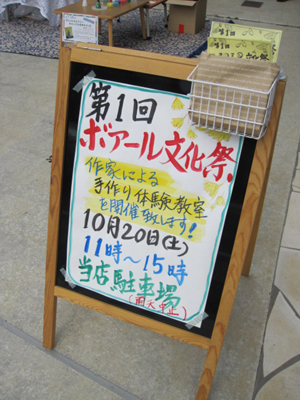 第1回
ボアール文化祭
作家による
手作り体験教室
を開催致します!
10月20日(土)
11時〜15時
当店駐車場
(雨天中止)